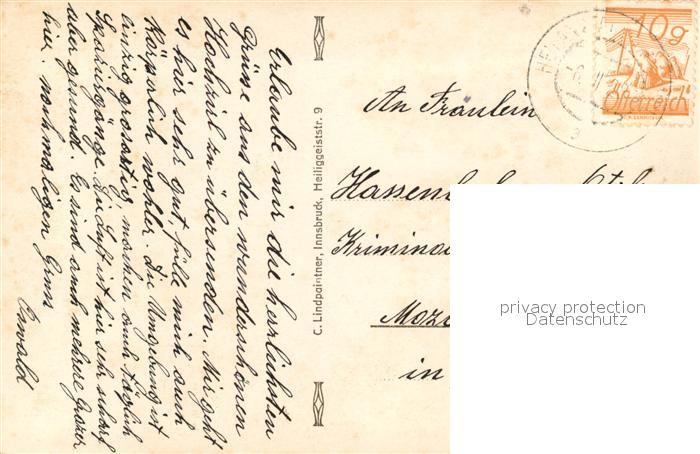 Erlaube mir die herzlichsten
Grüsse aus den wunderschönen
Hochzirl zu übersenden. Mir geht
es hier sehr gut, fühle mich auch
Körperlich wohler. Die Umgebung ist
einzig grossartig, machen auch täglich
Spaziergänge. Die Luft ist hier sehr scharf
aber gesund. Es sind auch mehrere Grazer
hier. nochmaligen Gruss
Oswald
C. Lindpaintner, Innsbruck, Heiliggeiststr. 9
10g
Österreich
An Fräulein
Kriminal
Moz
in
privacy protection
Datenschutz